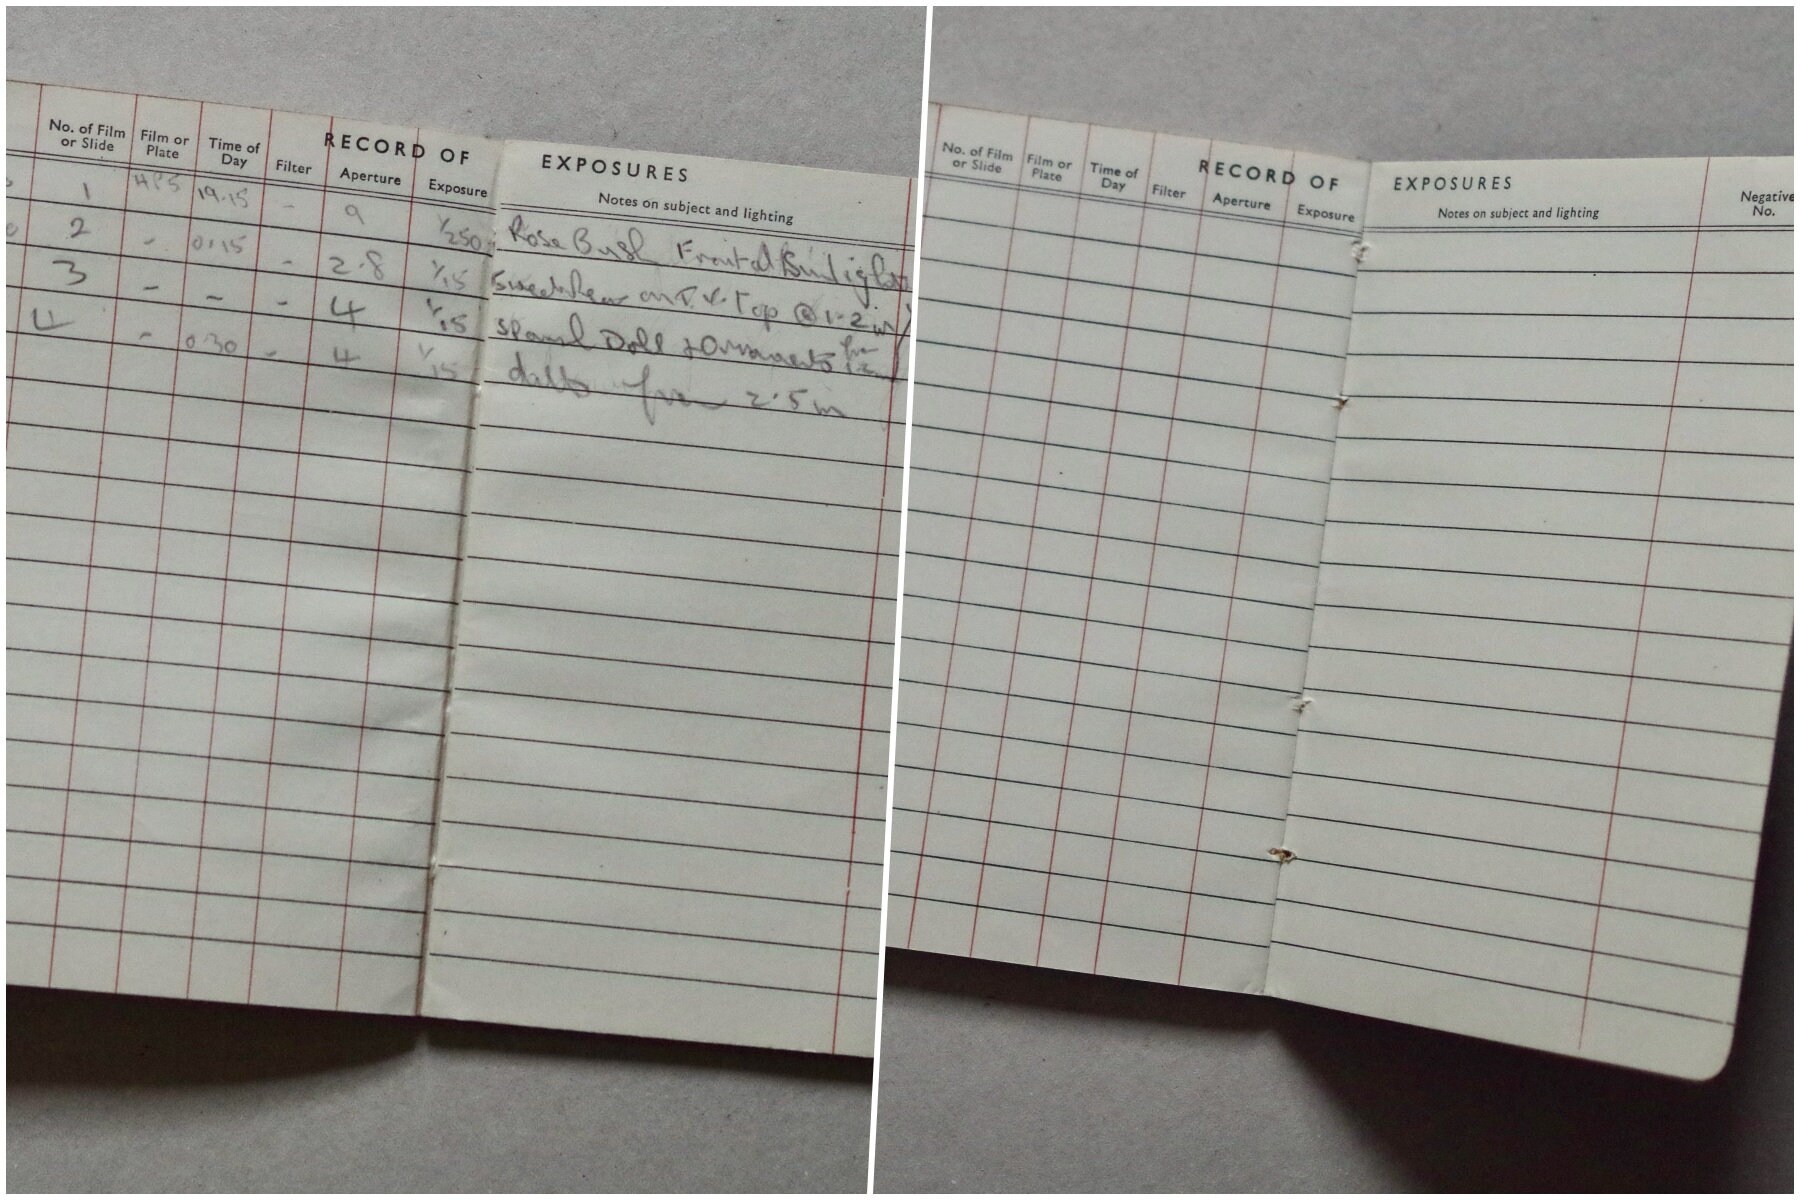 RECORD OF EXPOSURES
No. of Film or Slide Film or Plate Time of Day Filter Aperture Exposure Notes on subject and lighting
1 HP5 19.15 - 9 1/250 Rose Bush Frontal Sunlight
2 - 0.15 - 2.8 1/15 on T.V. Top @ 1.2 m
3 - - - 4 1/15 Doll + Ornaments
4 - 0.30 - 4 1/15 ditto from 2.5 m
RECORD OF EXPOSURES
No. of Film or Slide Film or Plate Time of Day Filter Aperture Exposure Notes on subject and lighting Negative No.